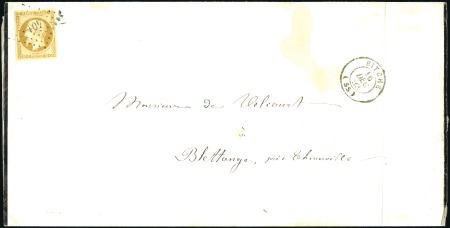 BITCHE
(55)
Monsieur de Volcourt
à
Blettange, près Thionville